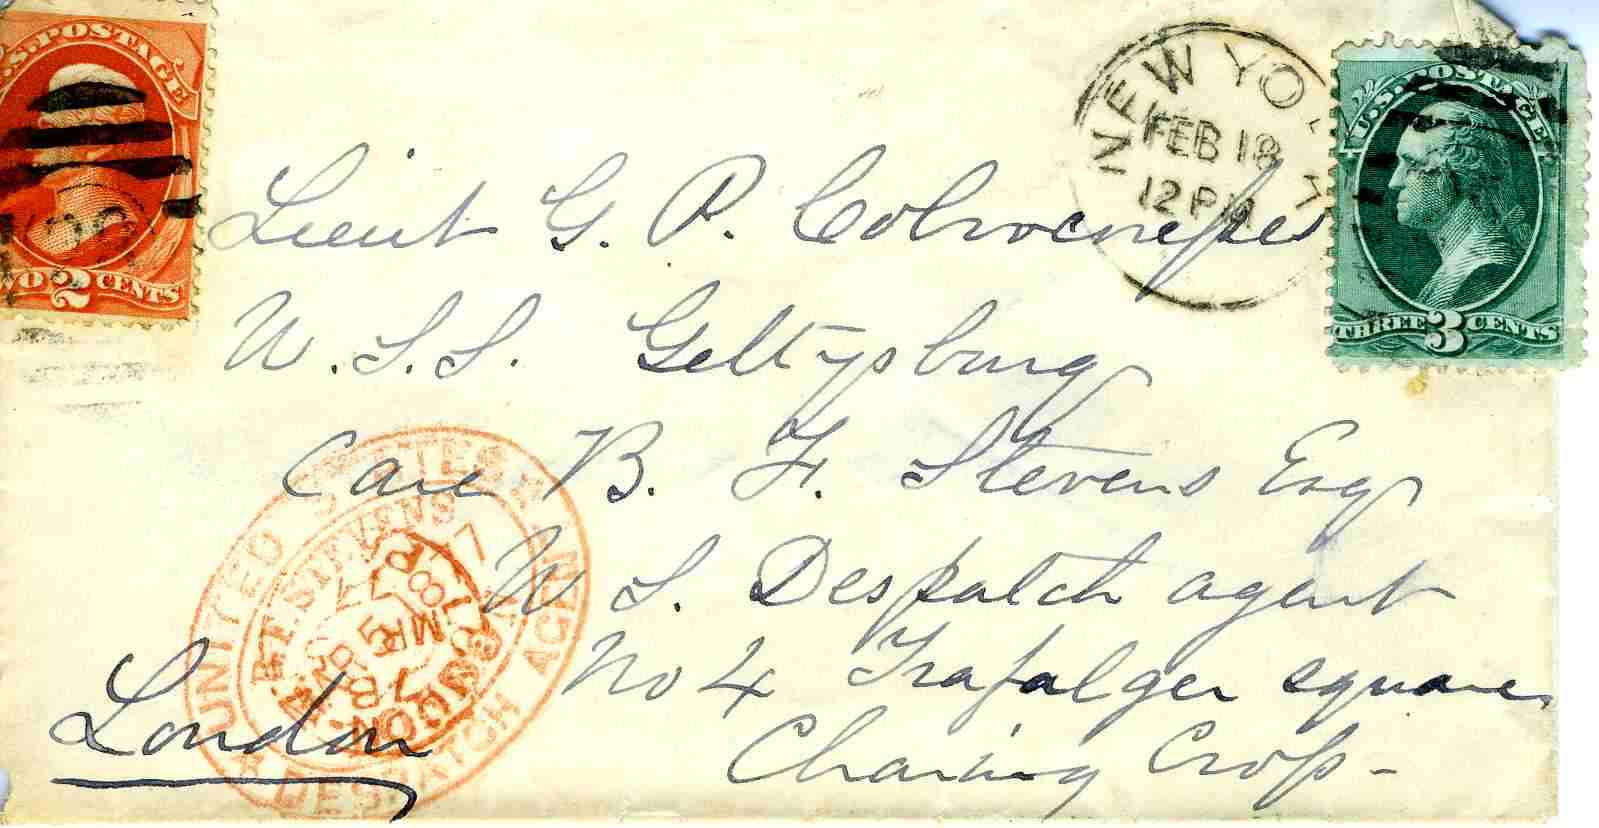 U.S. POSTAGE
TWO 2 CENTS
NEW YO
FEB 18
12 PM
U.S. POSTAGE
THREE 3 CENTS
Lieut G. P. Colvocoresses
U.S.S. Gettysburg
Care B. F. Stevens Esq
U S. Despatch agent
No 4 Trafalger square
Charing Cross -
London
UNITED STATES
DESPATCH AGENT
B.F. STEVENS
LONDON
MR 5